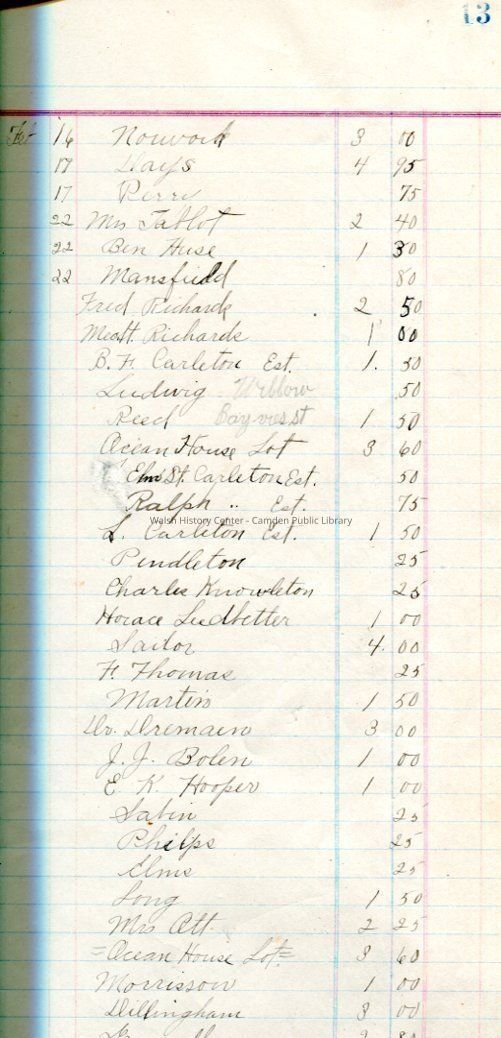 13
Feb 16 Norwood 3 00
17 Hays 4 95
17 Perry 75
22 Mrs Tablot 2 40
22 Ben Huse 1 30
22 Mansfield 80
Fred Richards 2 50
Matt. Richards 1 00
B. F. Carleton Est. 1. 50
Ludwig Willow .50
Reed Bayview St 1 50
Ocean House Lot 3 60
Elm St. Carleton Est. 50
Ralph " Est. 75
Walsh History Center - Camden Public Library
L. Carleton Est. 1 50
Pendleton 25
Charles Knowleton 25
Horace Ledbetter 1 00
Sailor 4. 00
F. Thomas 25
Martin 1 50
Dr. 3 00
J. J. Bolen 1 00
E. K. Hooper 1 00
Sabin 25
Philps 25
Elms 25
Long 1 50
Mrs Ott. 2 25
=Ocean House Lot= 3 60
Morrisson 1 00
Dillingham 3 00